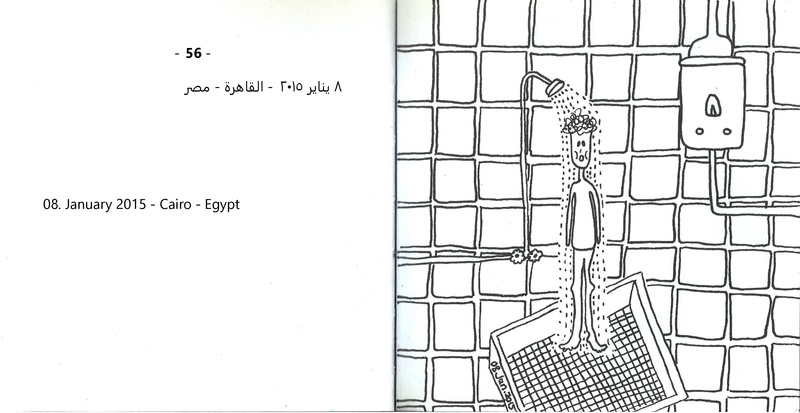 - 56 -
٨ يناير ٢٠١٥ - القاهرة - مصر
08. January 2015 - Cairo - Egypt
08.Jan.2015